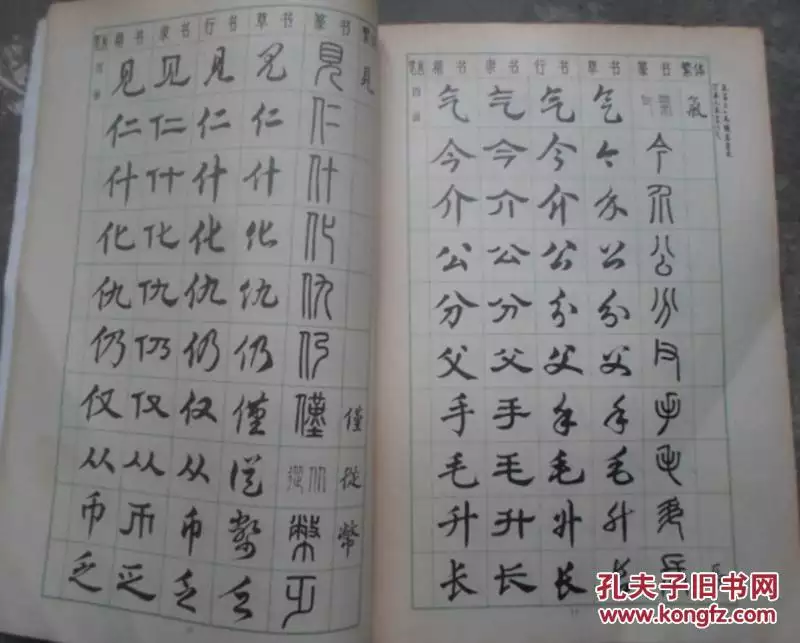 笔画 楷书 隶书 行书 草书 篆书 繁体
四画
见 见 见 见 見 見
仁 仁 仁 仁 仁
什 什 什 什 什
化 化 化 化 化
仇 仇 仇 仇 仇
仍 仍 仍 仍 仍
仅 仅 仅 僅 僅 僅
从 从 从 從 從 从 從
币 币 币 幣 幣 幣
乏 乏 乏 乏 乏
笔画 楷书 隶书 行书 草书 篆书 繁体
四画
气 气 气 气 气 氣 氣
今 今 今 今 今
介 介 介 介 介
公 公 公 公 公
分 分 分 分 分
父 父 父 父 父
手 手 手 手 手
毛 毛 毛 毛 毛
升 升 升 升 升
长 长 长 长 長
孔夫子旧书网
KONGFZ.COM